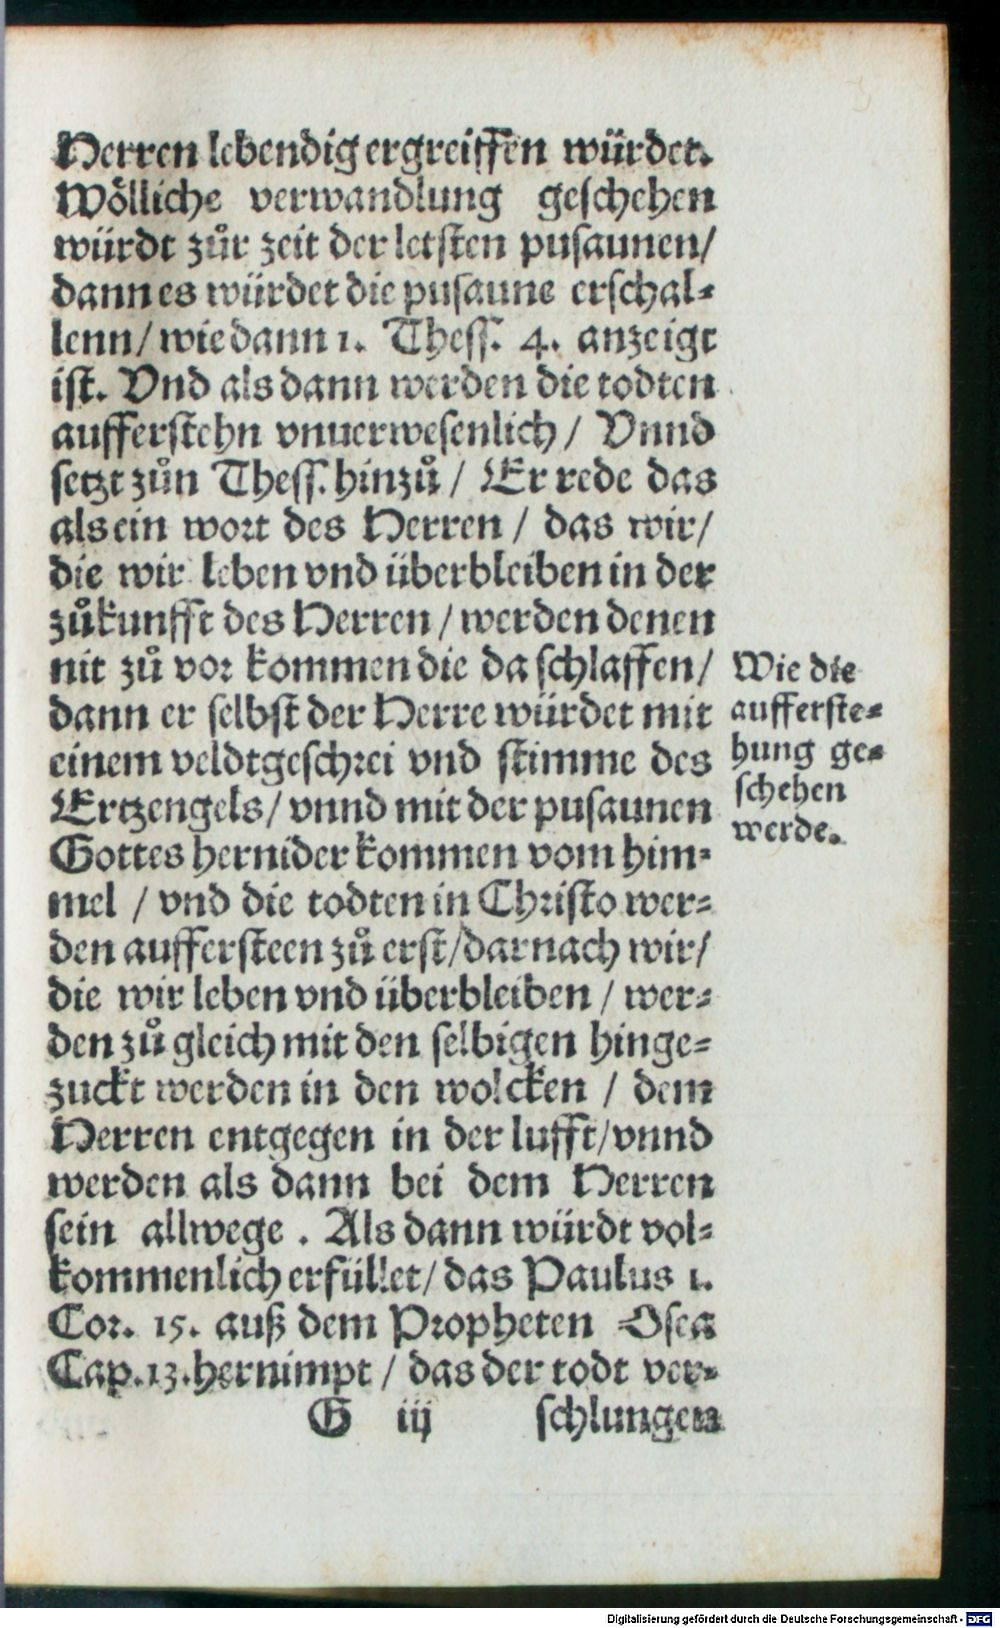 Herren lebendig ergreiffen würdet.
Wölliche verwandlung geschehen
würdt zůr zeit der letsten pusaunen/
dann es würdet die pusaune erschal-
lenn/ wie dann 1. Thess. 4. anzeigt
ist. Vnd als dann werden die todten
aufferstehn vnuerwesenlich/ Vnnd
setzt zůn Thess. hinzů/ Er rede das
als ein wort des Herren/ das wir/
die wir leben vnd überbleiben in der
zůkunfft des Herren/ werden denen
nit zů vor kommen die da schlaffen/
dann er selbst der Herre würdet mit
einem veldtgeschrei vnd stimme des
Ertzengels/ vnnd mit der pusaunen
Gottes hernider kommen vom him-
mel/ vnd die todten in Christo wer-
den auffersteen zů erst/ darnach wir/
die wir leben vnd überbleiben/ wer-
den zů gleich mit den selbigen hinge-
zuckt werden in den wolcken/ dem
Herren entgegen in der lufft/ vnnd
werden als dann bei dem Herren
sein allwege. Als dann würdt vol-
kommenlich erfüllet/ das Paulus 1.
Cor. 15. auß dem Propheten Osea
Cap. 13. hernimpt/ das der todt ver-
G iij schlungen
Wie die
aufferste-
hung ge-
schehen
werde.
Digitalisierung gefördert durch die Deutsche Forschungsgemeinschaft - DFG